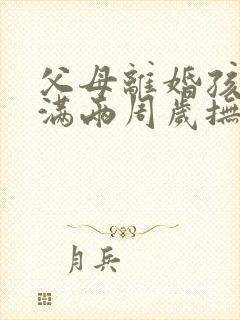 父母離婚孩
满两周歲撫
月兵